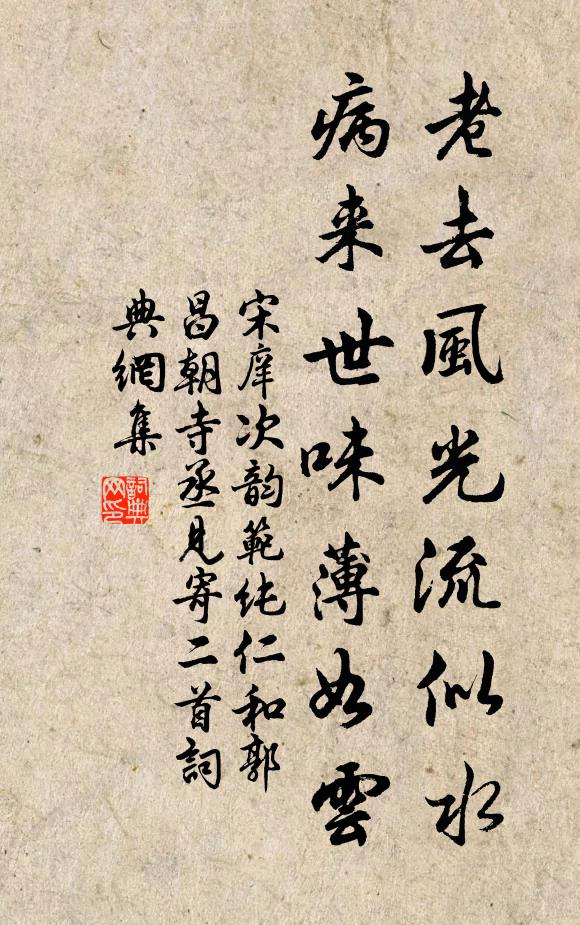 老去風光流似水
病来世味薄如雲
宋庠次韵範纯仁和郭
昌朝寺丞見寄二首詞
典網集
詞典
网印